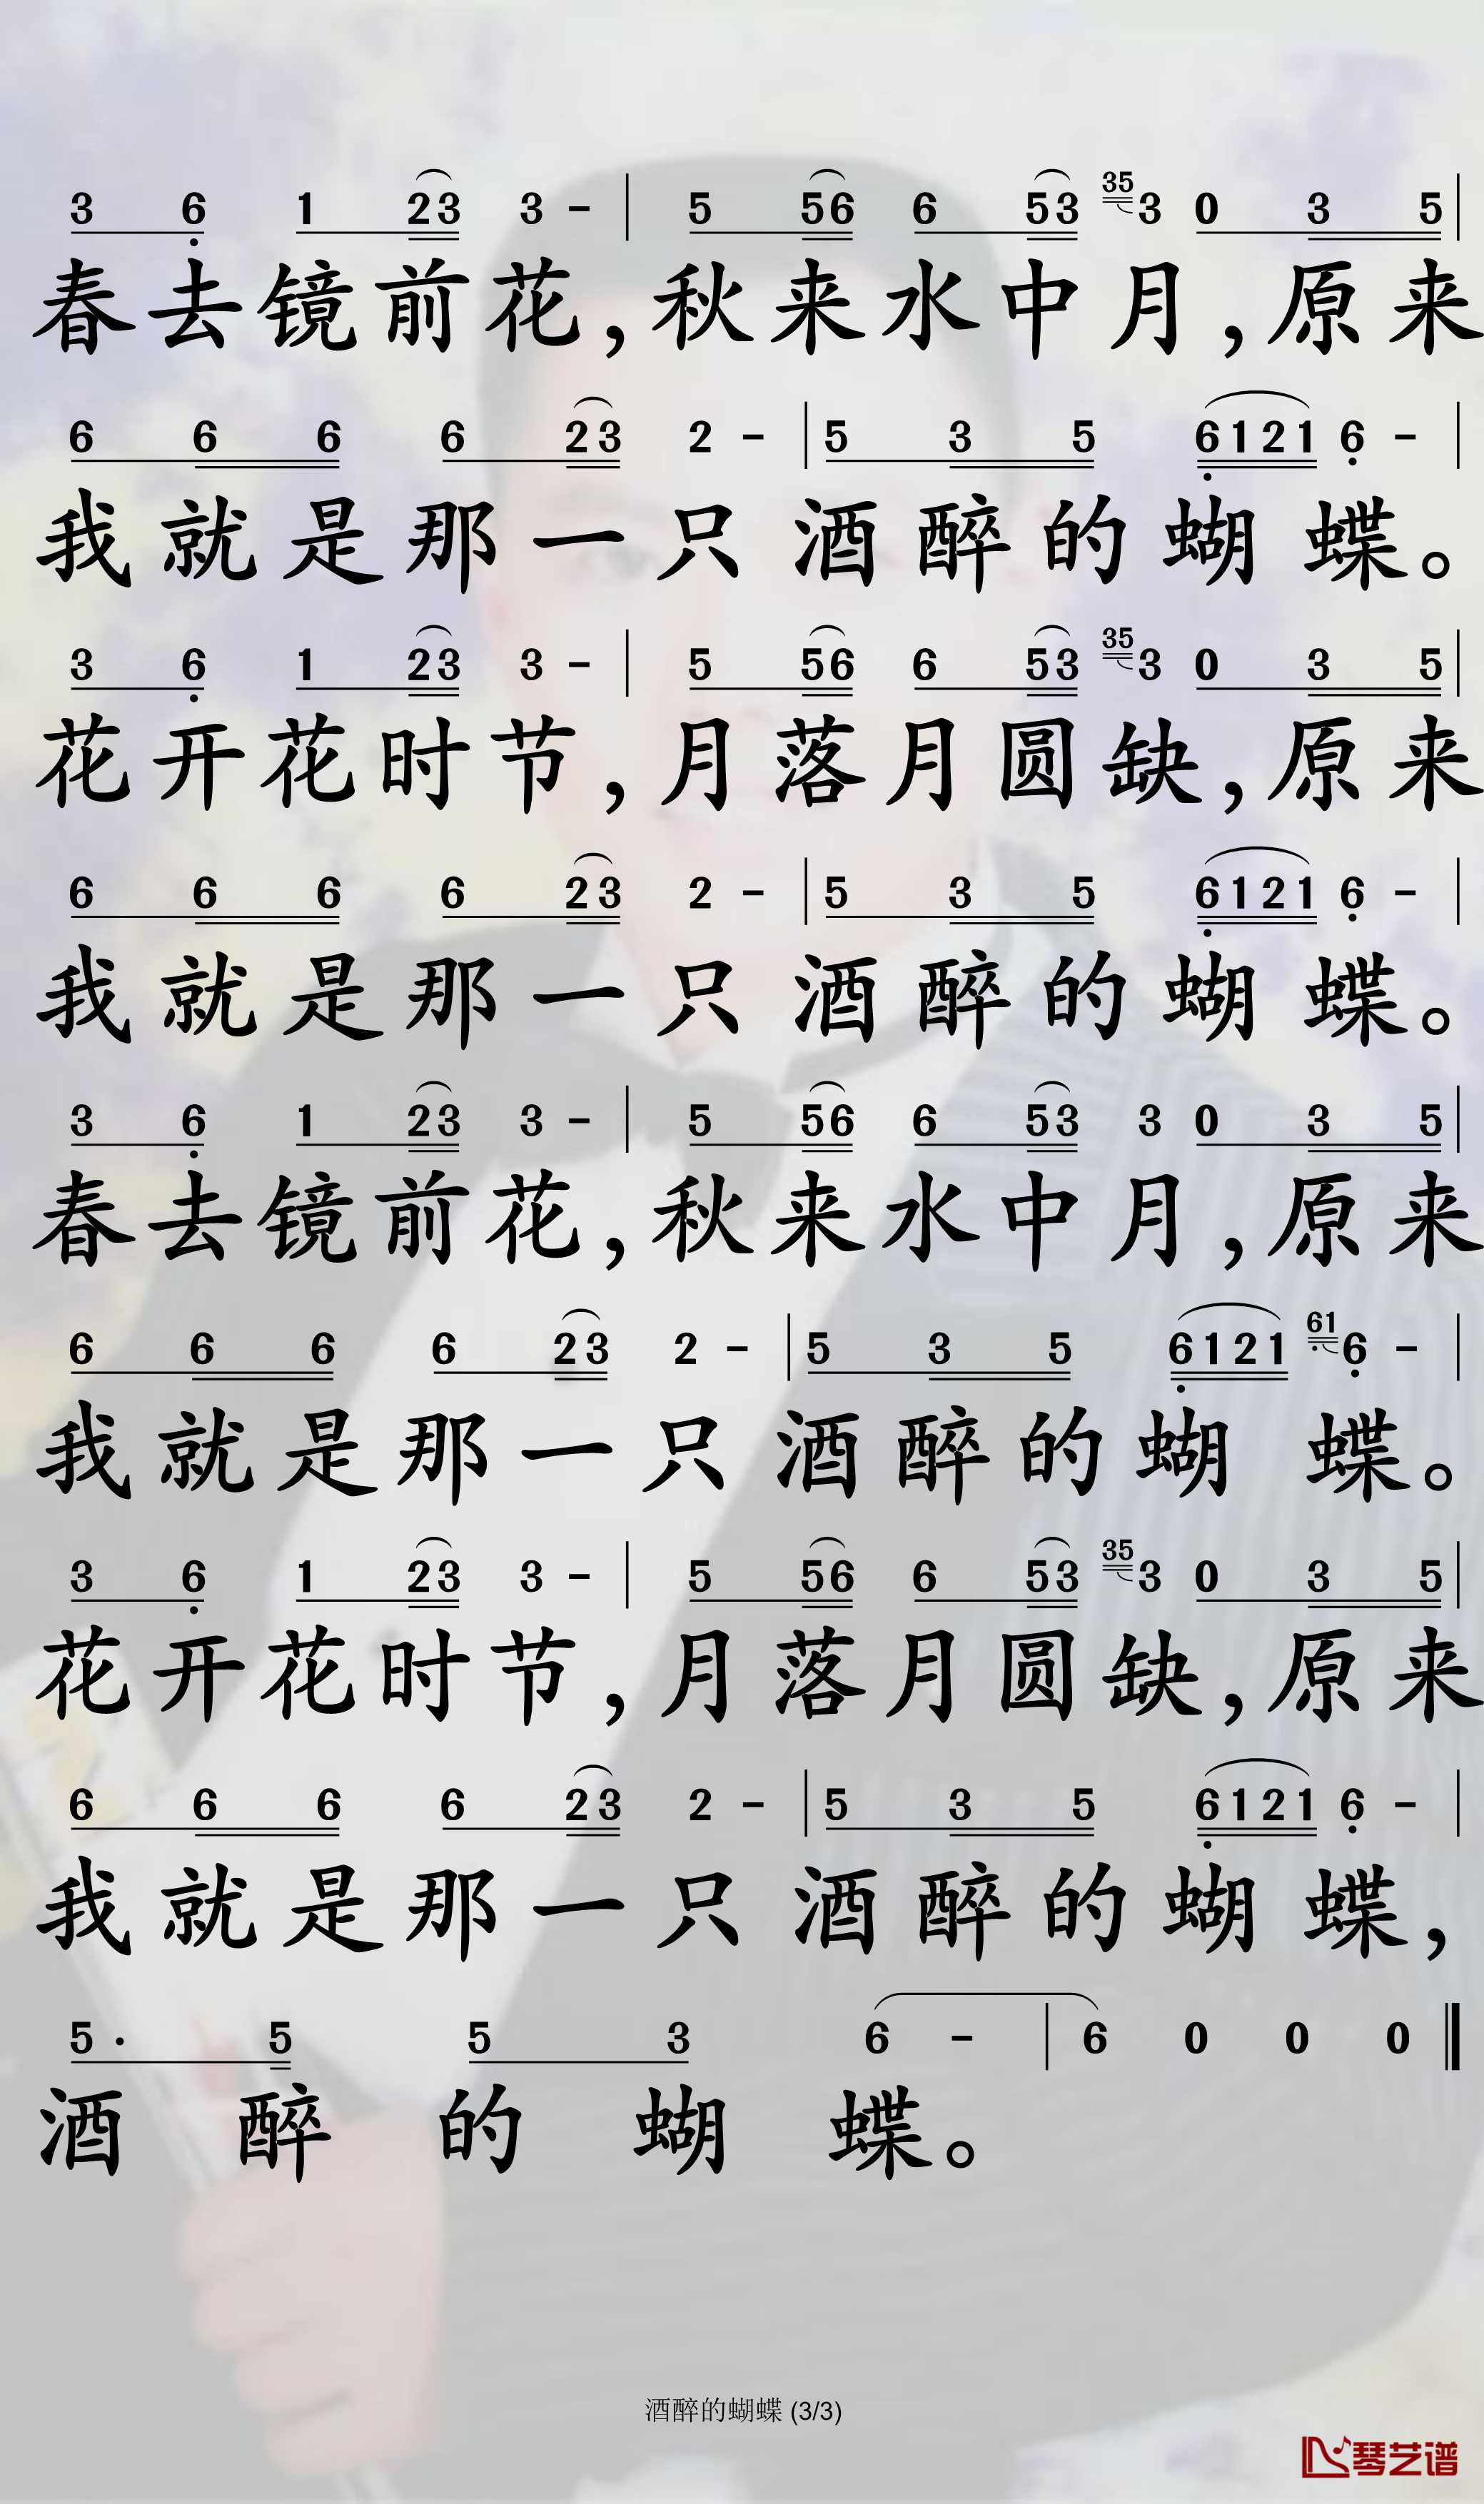 3 6 1 23 3 - | 5 56 6 53 35 3 0 3 5 |
春去镜前花，秋来水中月，原来
6 6 6 6 23 2 - | 5 3 5 6121 6 - |
我就是那一只酒醉的蝴蝶。
3 6 1 23 3 - | 5 56 6 53 35 3 0 3 5 |
花开花时节，月落月圆缺，原来
6 6 6 6 23 2 - | 5 3 5 6121 6 - |
我就是那一只酒醉的蝴蝶。
3 6 1 23 3 - | 5 56 6 53 3 0 3 5 |
春去镜前花，秋来水中月，原来
6 6 6 6 23 2 - | 5 3 5 6121 61 6 - |
我就是那一只酒醉的蝴蝶。
3 6 1 23 3 - | 5 56 6 53 35 3 0 3 5 |
花开花时节，月落月圆缺，原来
6 6 6 6 23 2 - | 5 3 5 6121 6 - |
我就是那一只酒醉的蝴蝶，
5 · 5 5 3 6 - | 6 0 0 0 ‖
酒醉的蝴蝶。
酒醉的蝴蝶 (3/3)
琴艺谱